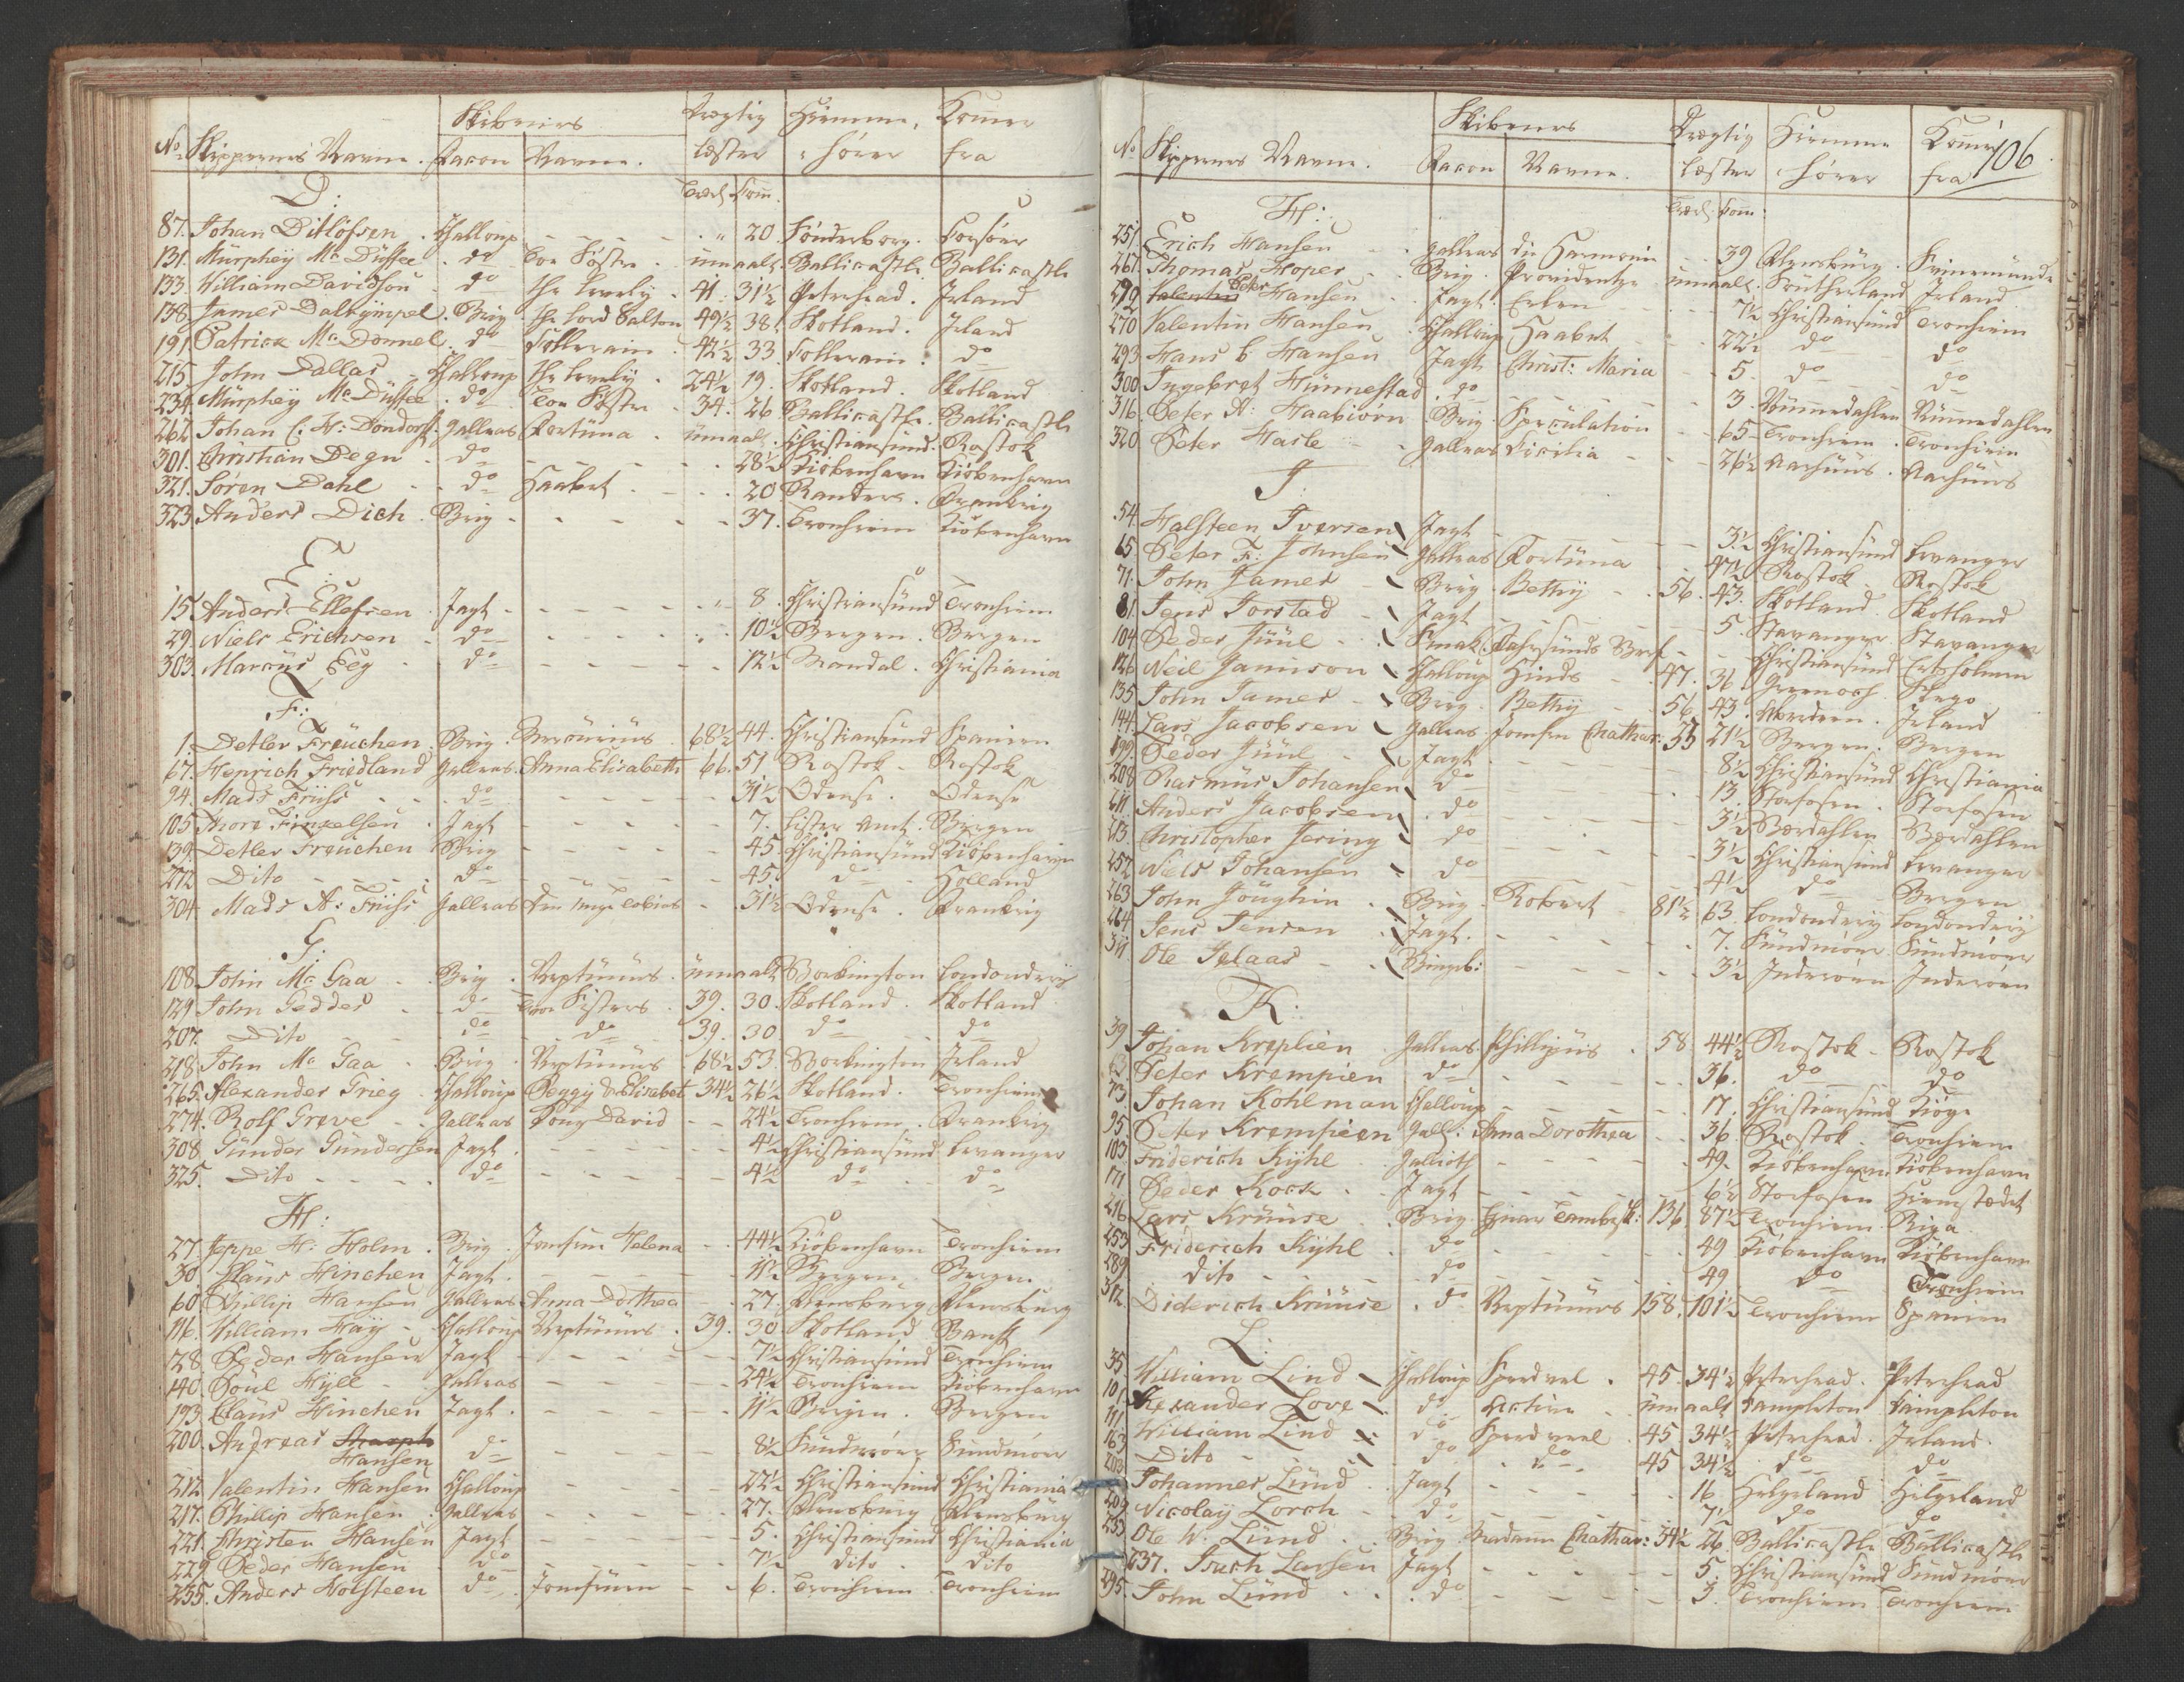 No Skippernes Navne. Skibenes Facon Navne. Drægtig Læster Træl. Com. Hiemme hører Kommer fra
D:
87. Johan Ditlofsen. Challoup - - - " 20 Sønderborg. Corsöer
131. Murphey Mc Duffee. do Too Søstre. umaalt. Ballicastle Ballicastle
133. William Davidson. do The Lovely. 41. 31½ Peterhead. Irland
138. James Dalrÿmpel. Brig The Lord Salton 49½ 38. Skotland. Irland
191. Patrick Mc Donnel. do 42½ 33 do
215. John Dallas - Challoup The Lovely. 24½ 19. Skotland. Skotland
234. Murphey Mc Duffee. do Too Søstre. 34. 26 Ballicastle. Ballicastle
262. Johan C: H: Dondorff. Galleas Fortuna. umaalt. Christiansund. Rostok
301. Christian Degn. do - - - 28½ Kiöbenhavn Kiöbenhavn
321. Soren Dahl - do Haabet. - - 20 Randers. Frankrig
323. Anders Dich. Brig - - - 37. Tronhiem Kiöbenhavn
E:
15 Anders Ellefsen. Jagt - - - " 8. Christiansund Tronhiem
29. Niels Erichsen - do - - - 10½ Bergen. Bergen
303. Marcus Eeg - do - - - 12½ Mandal. Christiania
F:
1. Detlev Freuchen. Brig. Mercurius 68½ 44. Christiansund Spanien
67. Henrich Friedland Galleas. Anna Elisabeth 66. 51 Rostok - Rostok
94. Mads Friihs - - do - - - 31½ Odense. Odense
105 Thore Finkelsen. Jagt - - - 7. Lister Amt. Bergen
139. Detlev Freuchen Brig - - - 45. Christiansund Kiöbenhavn
272 Dito - - - do - - - 45. do - Holland
304 Mads A: Friihs Galleas Den unge Tobias - 31½ Odense. Frankrig
G:
108. John Mc Gaa - Brig. Neptunus. umaalt Workington Londonderÿ
129 John Gedder - do Two Sisters. 39. 30. Skotland. Skotland
207. Dito - do - do 39. 30 do - do
218. John Mc Gaa - Brig. Neptunus 68½ 53. Workington Irland
265. Alexander Grieg. Challoup Peggy & Elisabet 34½ 26½ Skotland. Tronhiem
274. Rolf Greve - Galleas Kong David - - 24½ Tronhiem. Frankrig
308. Gunder Gundersen Jagt. - - - 4½ Christiansund Levanger
325. Dito - - - do - - - 4½ do - do
H:
27. Jeppe H: Holm. Brig. Jomfrue Helena - - 44½ Kiöbenhavn Tronhiem
30. Claus Hinchen Jagt. - - - 11½ Bergen. Bergen
60. Phillip Hansen Galleas Anna Dothea - 27. Flensburg Flensburg
116. William Haÿ - Challoup Neptunus. 39. 30. Skotland Banff
128. Peder Hansen Jagt - - - 7½ Christiansund Tronhiem
140. Poul Hÿll - Galleas - - - 24½ Tronhiem Kiöbenhavn
193. Claus Hinchen Jagt. - - - 11½ Bergen. Bergen
200. Andreas Hansen do - - - 8½ Sundmöer Sundmöer
212. Valentin Hansen Challoup - - - 22½ Christiansund Christiania
217. Phillip Hansen. Galleas - - - 27. Flensburg Flensburg
221. Christen Hansen Jagt - - - 5. Christiansund Christiania
229 Peder Hansen - do - - - 7½ Dito. Dito
235. Anders Holsteen do. Jomfruen - - 6. Tronhiem. Tronhiem
106
No Skippernes Navne. Skibenes Facon Navne. Drægtig Læster Træl. Com: Hiemme hører Kommer fra
H:
251. Erich Hansen - Galleas die Harmonie - - 39 Flensburg. Svinemünde
267. Thomas Hoper - Brig. Providentze umaalt. Southerland Irland
279 Valentin Peter Hansen. Jagt. - - 7½ Christiansund Tronhiem
270 Valentin Hansen. Challoup Haabet - - 22½ do - do
293 Hans C. Hansen Jagt Christ: Maria - - 5 do - do
300 Ingebret Hunnestad. do - - - 3 Nummedahlen Nummedahlen
316. Peter A: Haabiörn. Brig. Speculation - - 65 - Tronhiem. Tronhiem
320. Peter Hasle - Galleas Cicilia - - 26½ Aarhuus. Aarhuus
J:
54. Halsteen Iversen Jagt - - - 3½ Christiansund Levanger
65. Peter F: Johnsen Galleas Fortuna - - 47½ Rostok - Rostok
71. John James - Brig. Bethy - - 56. 43. Skotland. Skotland
81. Jens Jorstad - Jagt - - - 5. Stavanger Stavanger
104. Peder Juul - Smak. - Christiansund
126 Neil Jamison - Challoup Hinds - 47. 36. Greenoch
135 John James - Brig. Bethy - 56 43. Aberdeen. Irland
144. Lars Jacobsen - Galleas. Jomfru Cathar: 33 21½ Bergen. Bergen
199. Peder Juul - Jagt. - - - 8½ Christiansund Christiania
208. Rasmus Johansen do - - - 13. Storfosen. Storfosen
211 Anders Jacobsen. do - - - 3½ Værdahlen Værdahlen
213. Christopher Jering - do - - - 3½ Christiansund Levanger
252. Niels Johansen - do - - - 4½ do - Bergen
263 John Joughin. Brig. Robert - 81½ 63. Londonderÿ Londonderÿ
264 Jens Jensen - Jagt. - - - 7. Sundmöer Sundmöer
311 Ole Jelaas - - - - 3½ Inderöen Inderöen
K:
39 Johan Kreplien. Galleas. Phillippus. 58 44½ Rostok - Rostok
63 Peter Krempien do - - - 36. do - do
73 Johan Kohlman Challoup - - - 17. Christiansund Kiöge
95 Peter Krempien Gall: Anna Dorothea - - 36. Rostok. Tronhiem
103 Friderich Kÿhl. Galliott - - - 49. Kiöbenhavn Kiöbenhavn
171 Peder Kock. Jagt - - - 6½ Storfosen Hiemstædet
216 Lars Kruuse. Brig. Ejnar Tambesk: 136 87½ Tronhiem. Riga
253 Friderich Kÿhl. do - - - 49 Kiöbenhavn Kiöbenhavn
289 Dito - - do - - - 49 do - Tronhiem
312. Diderich Kruuse. do Neptunus 158. 101½ Tronhiem Spanien
L:
35. William Lind - Challoup Speedvel. 45. 34½ Peterhead. Peterhead
101 Alexander Love. do Active - umaalt Campleton Campleton
111 William Lind - do Speedwel. 45 34½ Peterhead. Irland
163 Dito - do - do 45 34½ do - do
203 Johannes Lund. Jagt - - - 16 Helgeland Helgeland
209 Nicolaÿ Lorch - do - - - 7½ do - do
233 Ole W: Lund. Brig Madame Chathar: 34½ 26 Ballicastle Ballicastle
237. Larsen Jagt - - - 5. Christiansund Sundmöer
295. John Lund - do - - - 3. Tronhiem. Tronhiem